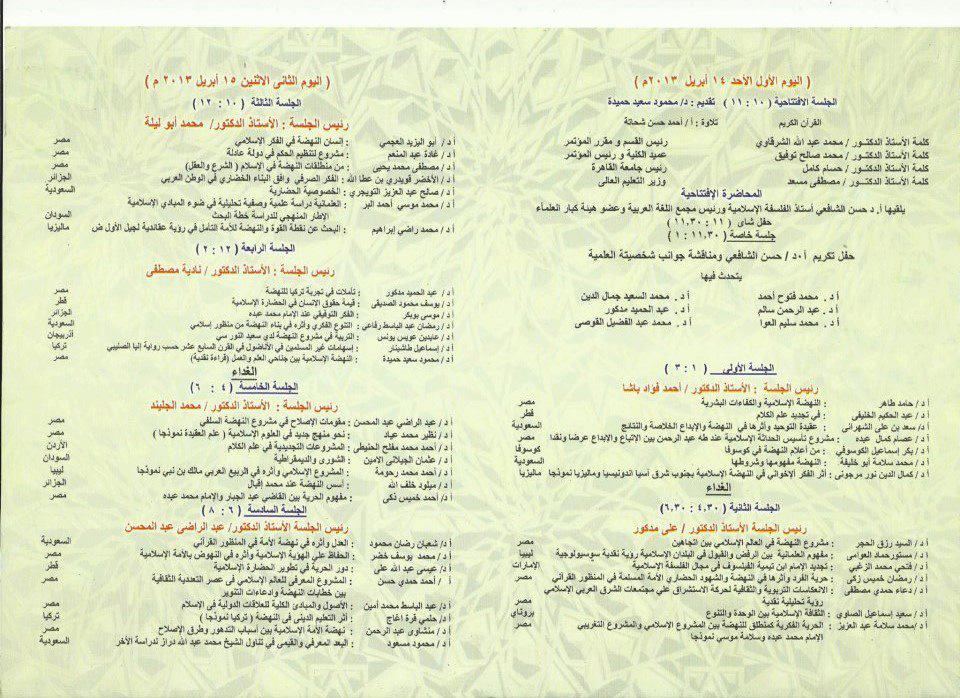 ( اليوم الأول الأحد ١٤ أبريل ٢٠١٣م )
الجلسة الافتتاحية ( ١٠ : ١١ ) تقديم : د/ محمود سعيد حميدة
القرآن الكريم تلاوة : أ / أحمد حسن شحاتة
كلمة الأستاذ الدكتور / محمد عبد الله الشرقاوي رئيس القسم و مقرر المؤتمر
كلمة الأستاذ الدكتور / محمد صالح توفيق عميد الكلية و رئيس المؤتمر
كلمة الأستاذ الدكتور / حسام كامل رئيس جامعة القاهرة
كلمة الأستاذ الدكتور / مصطفى مسعد وزير التعليم العالى
المحاضرة الإفتتاحية
يلقيها أ. د حسن الشافعي أستاذ الفلسفة الإسلامية ورئيس مجمع اللغة العربية وعضو هيئة كبار العلماء
حفل شاى ( ١١ : ١١,٣٠ )
جلسة خاصة ( ١١,٣٠ : ١ )
حفل تكريم أ.د / حسن الشافعي ومناقشة جوانب شخصيتة العلمية
يتحدث فيها
أ.د . محمد فتوح أحمد أ.د . محمد السعيد جمال الدين
أ.د . عبد الرحمن سالم أ.د . عبد الحميد مدكور
أ.د . محمد سليم العوا أ.د . محمد عبد الفضيل القوصى
الجلسة الأولى ( ١ : ٣ )
رئيس الجلسة : الأستاذ الدكتور / أحمد فؤاد باشا
أ.د/ حامد طاهر : النهضة الإسلامية والكفاءات البشرية مصر
أ.د/ عبد الحكيم الخليفى : في تجديد علم الكلام قطر
أ.د/ سعد بن على الشهرانى : عقيدة التوحيد وأثرها في النهضة والإبداع الخلاصة والنتائج السعودية
أ.د/ عصام كمال عبده : مشروع تأسيس الحداثة الإسلامية عند طه عبد الرحمن بين الاتباع والإبداع عرضا ونقدا مصر
أ.د/ بكر إسماعيل الكوسوفي : من أعلام النهضة في كوسوفا كوسوفا
أ.د/ محمد سلامة أبو خليفة : النهضة مفهومها وشروطها السعودية
أ.د/ كمال الدين نور مرجونى : أثر الفكر الإخواني في النهضة الإسلامية بجنوب شرق آسيا اندونيسيا وماليزيا نموذجا ماليزيا
الغداء
الجلسة الثانية ( ٤,٣٠ : ٦,٣٠ )
رئيس الجلسة الأستاذ الدكتور / على مدكور
أ.د/ السيد رزق الحجر : مشروع النهضة في العالم الإسلامي بين اتجاهين مصر
أ.د/ مستورحماد العوامى : مفهوم العلمانية بين الرفض والقبول في البلدان الإسلامية رؤية نقدية سوسيولوجية ليبيا
أ.د/ فتحي محمد الزغبي : تجديد الإمام ابن تيمية الفيلسوف في مجال الفلسفة الإسلامية الإمارات
أ.د/ رمضان خميس زكى : حرية الفرد وأثرها في النهضة والشهود الحضاري الأمة المسلمة في المنظور القرآني مصر
أ.د/ دعاء حمدي مصطفى : الانعكاسات التربوية والثقافية لحركة الاستشراق على مجتمعات الشرق العربي الإسلامي
رؤية تحليلية نقدية مصر
أ.د/ سعيد إسماعيل الصاوى : الثقافة الإسلامية بين الوحدة والتنوع بروناي
أ.د/ محمد سلامة عبد العزيز : الحرية الفكرية كمنطلق للنهضة بين المشروع الإسلامي والمشروع التغريبي مصر
الإمام محمد عبده وسلامة موسى نموذجا
( اليوم الثانى الاثنين ١٥ أبريل ٢٠١٣ م )
الجلسة الثالثة ( ١٠ : ١٢ )
رئيس الجلسة : الأستاذ الدكتور/ محمد أبو ليلة
أ.د/ أبو اليزيد العجمي : إنسان النهضة في الفكر الإسلامي مصر
أ.د/ غادة عبد المنعم : مشروع لتنظيم الحكم في دولة عادلة مصر
أ.د/ مصطفى محمد يحيى : من منطلقات النهضة في الإسلام ( الشرع والعقل) مصر
أ.د/ الأخضر قويدري بن عطا الله : الفكر الصرفي وافق البناء الحضاري في الوطن العربي الجزائر
أ.د/ صالح عبد العزيز التويجري : الخصوصية الحضارية السعودية
أ.د/ محمد موسي أحمد البر : العلمانية دراسة علمية وصفية تحليلية في ضوء المبادي الإسلامية
الإطار المنهجي للدراسة خطة البحث السودان
أ.د/ محمد راضي إبراهيم : البحث عن نقطة القوة والنهضة للأمة التأمل في رؤية عقائدية لجيل الأول ض ماليزيا
الجلسة الرابعة ( ١٢ : ٢ )
رئيس الجلسة : الأستاذ الدكتور / نادية مصطفى
أ.د/ عبد الحميد مدكور : تأملات في تجربة تركيا للنهضة مصر
أ.د/ يوسف محمود الصديقي : قيمة حقوق الإنسان في الحضارة الإسلامية قطر
أ.د/ موسى بوبكر : الفكر التوفيقي عند الإمام محمد عبده الجزائر
أ.د/ رمضان عبد الباسط رفاعى : التنوع الفكري وأثره في بناء النهضة من منظور إسلامي السعودية
أ.د/ عابدين عويس يونس : التربية في مشروع النهضة لدي سعيد النور سي أذربيجان
أ.د/ إسماعيل طاشبنار : إسهامات غير المسلمين في الأناضول في القرن السابع عشر حسب رواية إليا الصليبي تركيا
أ.د/ محمود سعيد حميدة : النهضة الإسلامية بين جناحي العلم والعمل (قراءة نقدية) مصر
الغداء
الجلسة الخامسة ( ٤ : ٦ )
رئيس الجلسة : الأستاذ الدكتور / محمد الجليند
أ.د/ عبد الراضي عبد المحسن : مقومات الإصلاح في مشروع النهضة السلفي مصر
أ.د/ نظير محمد عياد : نحو منهج جديد في العلوم الإسلامية ( علم العقيدة نموذجا ) مصر
أ.د/ أحمد محمد مفلح الحنيطي : المشروعات التجديدية في علم الكلام الأردن
أ.د/ عثمان الجيلاني الامين : الشورى والديمقراطية السودان
أ.د/ أحمد محمد رحومة : المشروع الإسلامي وأثره في الربيع العربي مالك بن نبي نموذجا ليبيا
أ.د/ ميلود خلف الله : أسس النهضة عند محمد إقبال الجزائر
أ.د/ أحمد خميس ذكى : مفهوم الحرية بين القاضي عبد الجبار والإمام محمد عبده مصر
الجلسة السادسة ( ٦ : ٨ )
رئيس الجلسة الأستاذ الدكتور/ عبد الراضى عبد المحسن
أ.د/ شعبان رضان محمود : العدل وأثره في نهضة الأمة في المنظور القرآني السعودية
أ.د/ محمد يوسف خضر : الحفاظ علي الهوية الإسلامية وأثره في النهوض بالأمة الإسلامية مصر
أ.د/ عيسى عبد الله على : دور الحرية في تطوير الحضارة الإسلامية قطر
أ / أحمد حمدي حسن : المشروع المعرفي للعالم الإسلامى في عصر التعددية الثقافية مصر
بين خطابات النهضة وادعاءات التنوير
أ.د/ عبد الباسط محمد أمين : الأصول والمبادئ الكلية للعلاقات الدولية في الإسلام مصر
أ.د/ حلمي قرة أغاج : أثر التعليم الدينى في النهضة ( تركيا نموذجا ) تركيا
أ.د/ منشاوى عبد الرحمن : نهضة الأمة الإسلامية بين أسباب التدهور وطرق الإصلاح مصر
أ.د/ محمود مسعود : البعد المعرفي والقيمى في تناول الشيخ محمد عبد الله دراز لدراسة الآخر السعودية